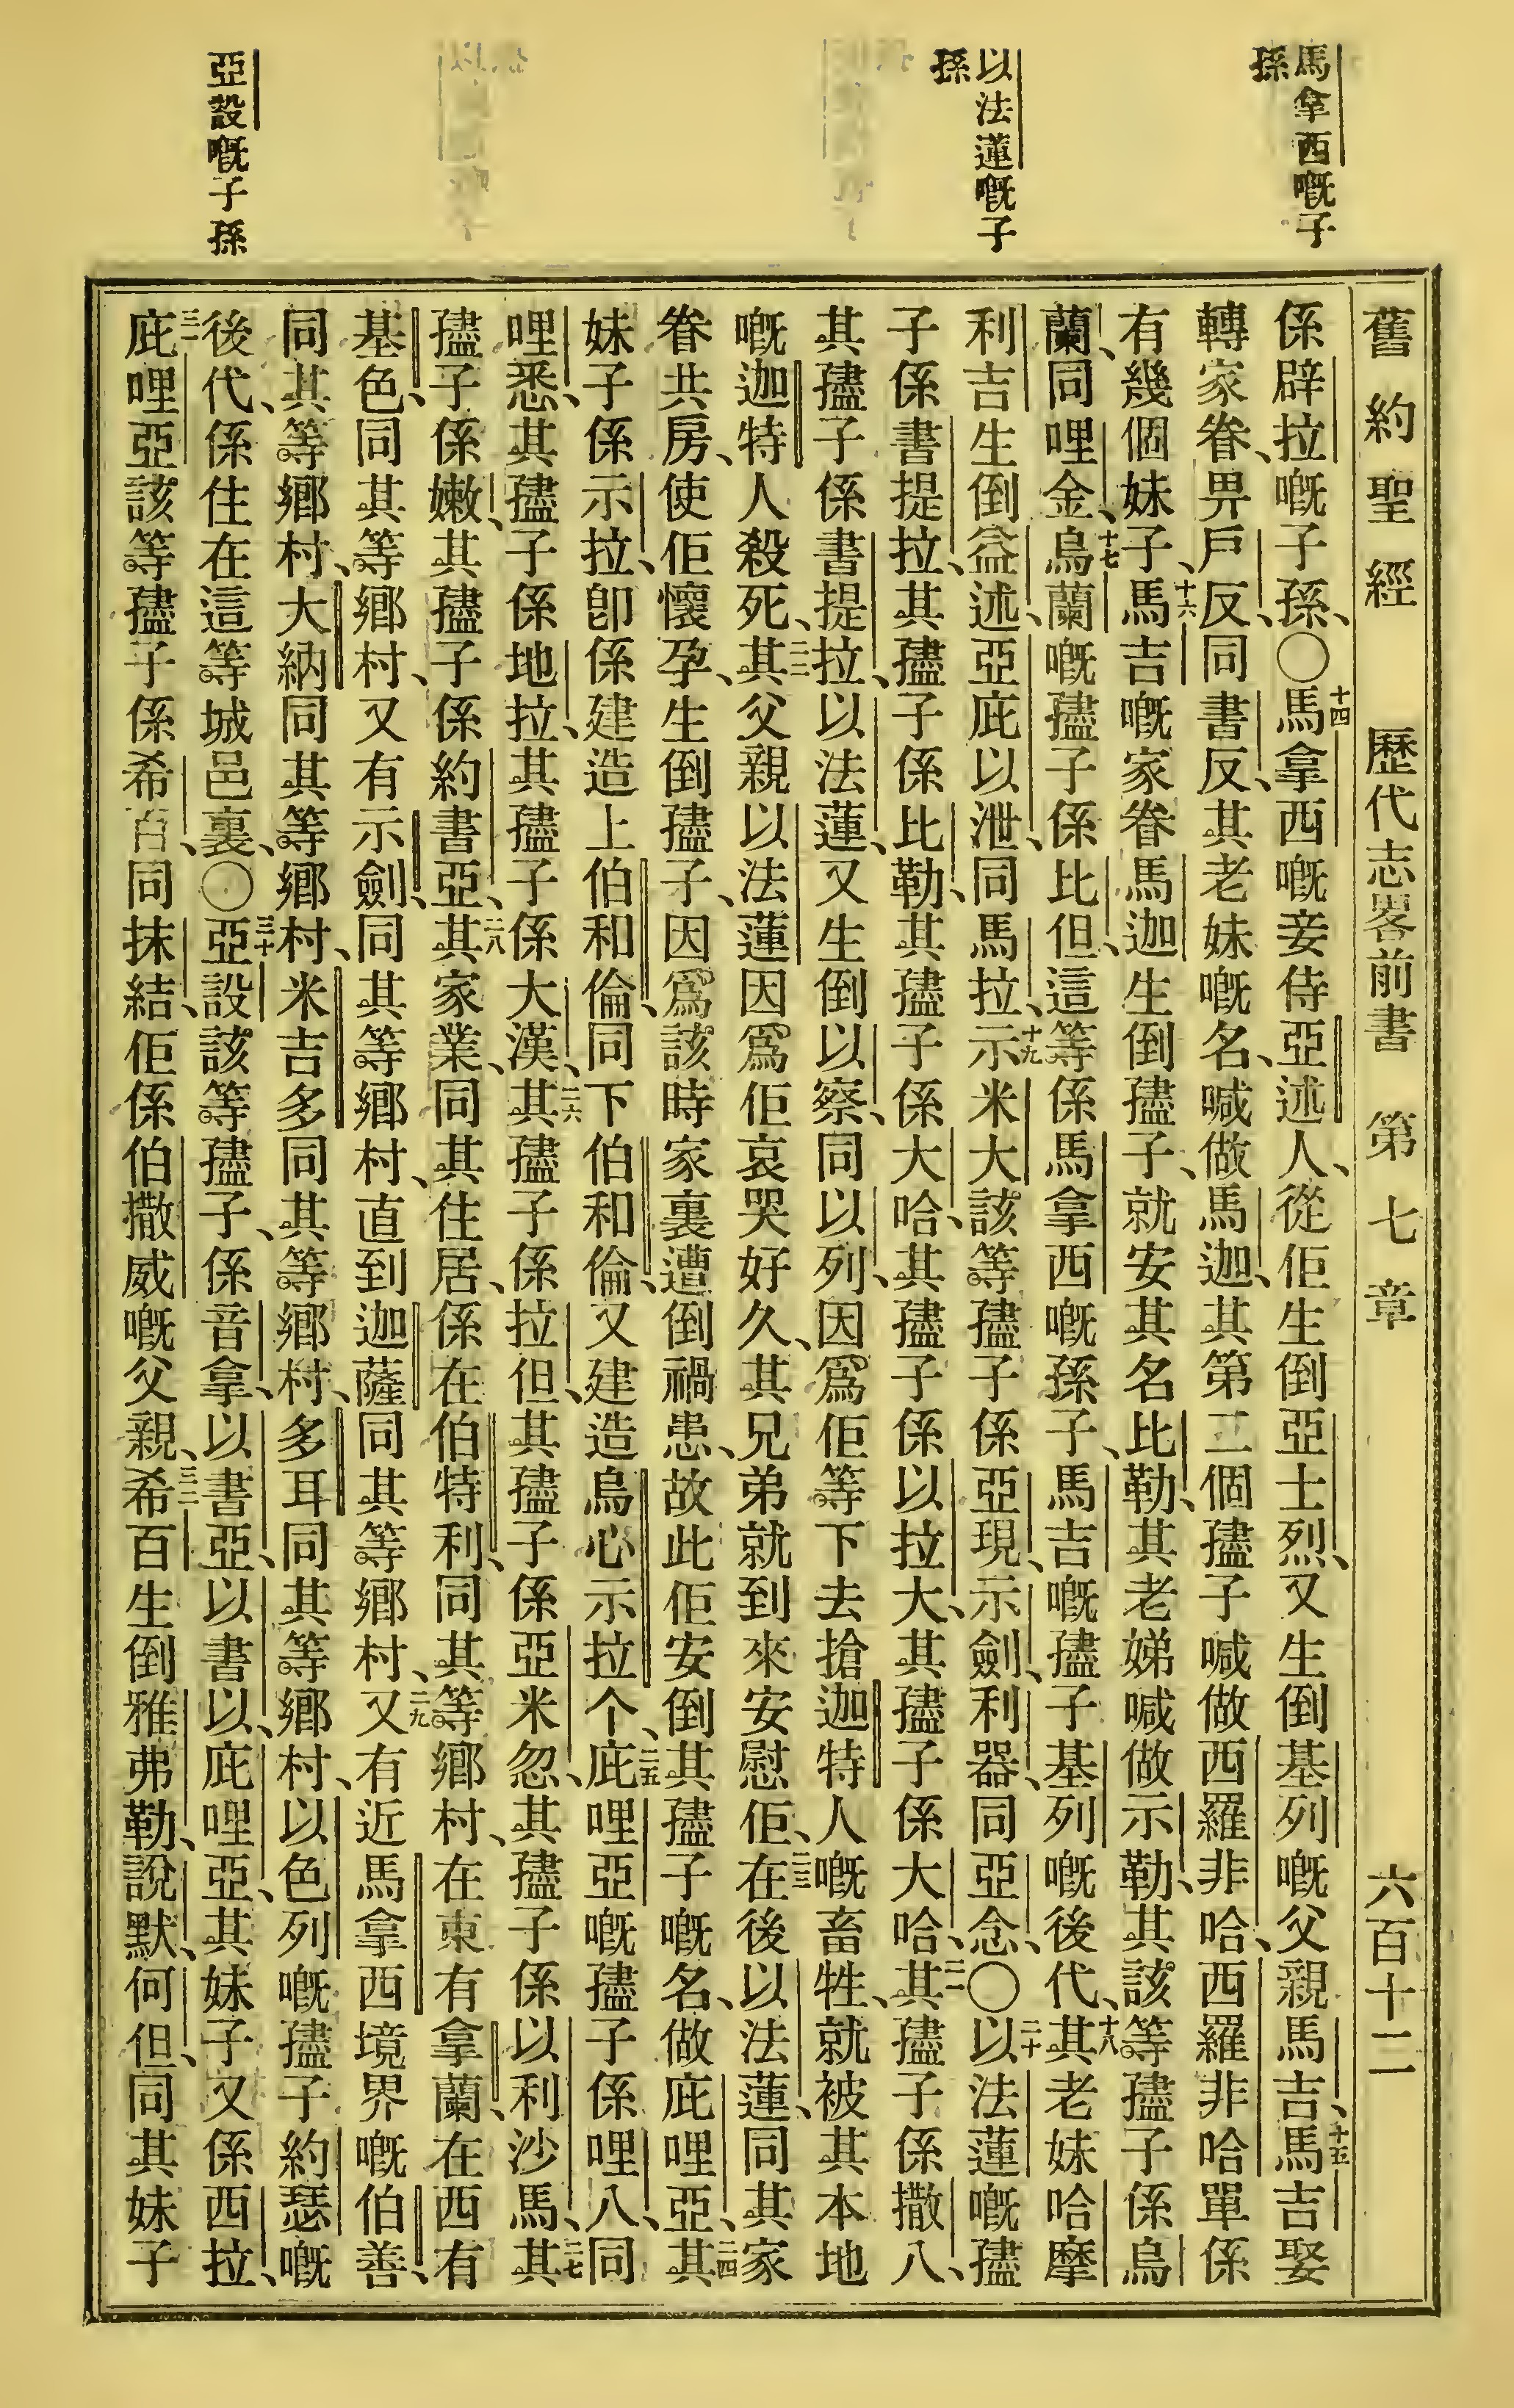 馬拿西嘅子
孫
以法蓮嘅子
孫
亞設嘅子孫
舊約聖經 歷代志畧前書 第七章 六百十二
係辟拉嘅子孫、〇十四馬拿西嘅妾侍亞述人、從佢生倒亞士烈、又生倒基列嘅父親馬吉、十五馬吉娶
轉家眷畀戶反、同書反、其老妹嘅名、喊做馬迦、其第二個孻子喊做西羅非哈、西羅非哈單係
有幾個妹子、十六馬吉嘅家眷馬迦生倒孻子、就安其名比勒、其老娣喊做示勒、其該等孻子係烏
蘭、同哩金、十七烏蘭嘅孻子係比但、這等係馬拿西嘅孫子、馬吉嘅孻子基列嘅後代、十八其老妹哈摩
利吉生倒益述、亞庇以泄、同馬拉、十九示米大該等孻子係亞現、示劍、利器、同亞念、〇二十以法蓮嘅孻
子係書提拉、其孻子係比勒、其孻子係大哈、其孻子係以拉大、其孻子係大哈、二一其孻子係撒八、
其孻子係書提拉、以法蓮、又生倒以察、同以列、因爲佢等下去搶迦特人嘅畜牲、就被其本地
嘅迦特人殺死、二二其父親以法蓮因爲佢哀哭好久、其兄弟就到來安慰佢、二三在後以法蓮、同其家
眷共房、使佢懷孕、生倒孻子、因爲該時家裏遭倒禍患、故此佢安倒其孻子嘅名、做庇哩亞、二四其
妹子係示拉、卽係建造上伯和倫、同下伯和倫、又建造烏心示拉个、二五庇哩亞嘅孻子係哩八、同
哩悉、其孻子係地拉、其孻子係大漢、二六其孻子係拉但、其孻子係亞米忽、其孻子係以利沙馬、二七其
孻子係嫩、其孻子係約書亞、二八其家業、同其住居、係在伯特利、同其等鄉村、在東有拿蘭、在西有
基色、同其等鄉村、又有示劍、同其等鄉村、直到迦薩同其等鄉村、二九又有近馬拿西境界嘅伯善、
同其等鄉村、大納同其等鄉村、米吉多同其等鄉村、多耳同其等鄉村、以色列嘅孻子約瑟嘅
後代、係住在這等城邑裏、〇三十亞設該等孻子、係音拿、以書亞、以書以、庇哩亞、其妹子又係西拉、
三一庇哩亞該等孻子係希百、同抹結、佢係伯撒威嘅父親、三二希百生倒雅弗勒、說默、何但、同其妹子